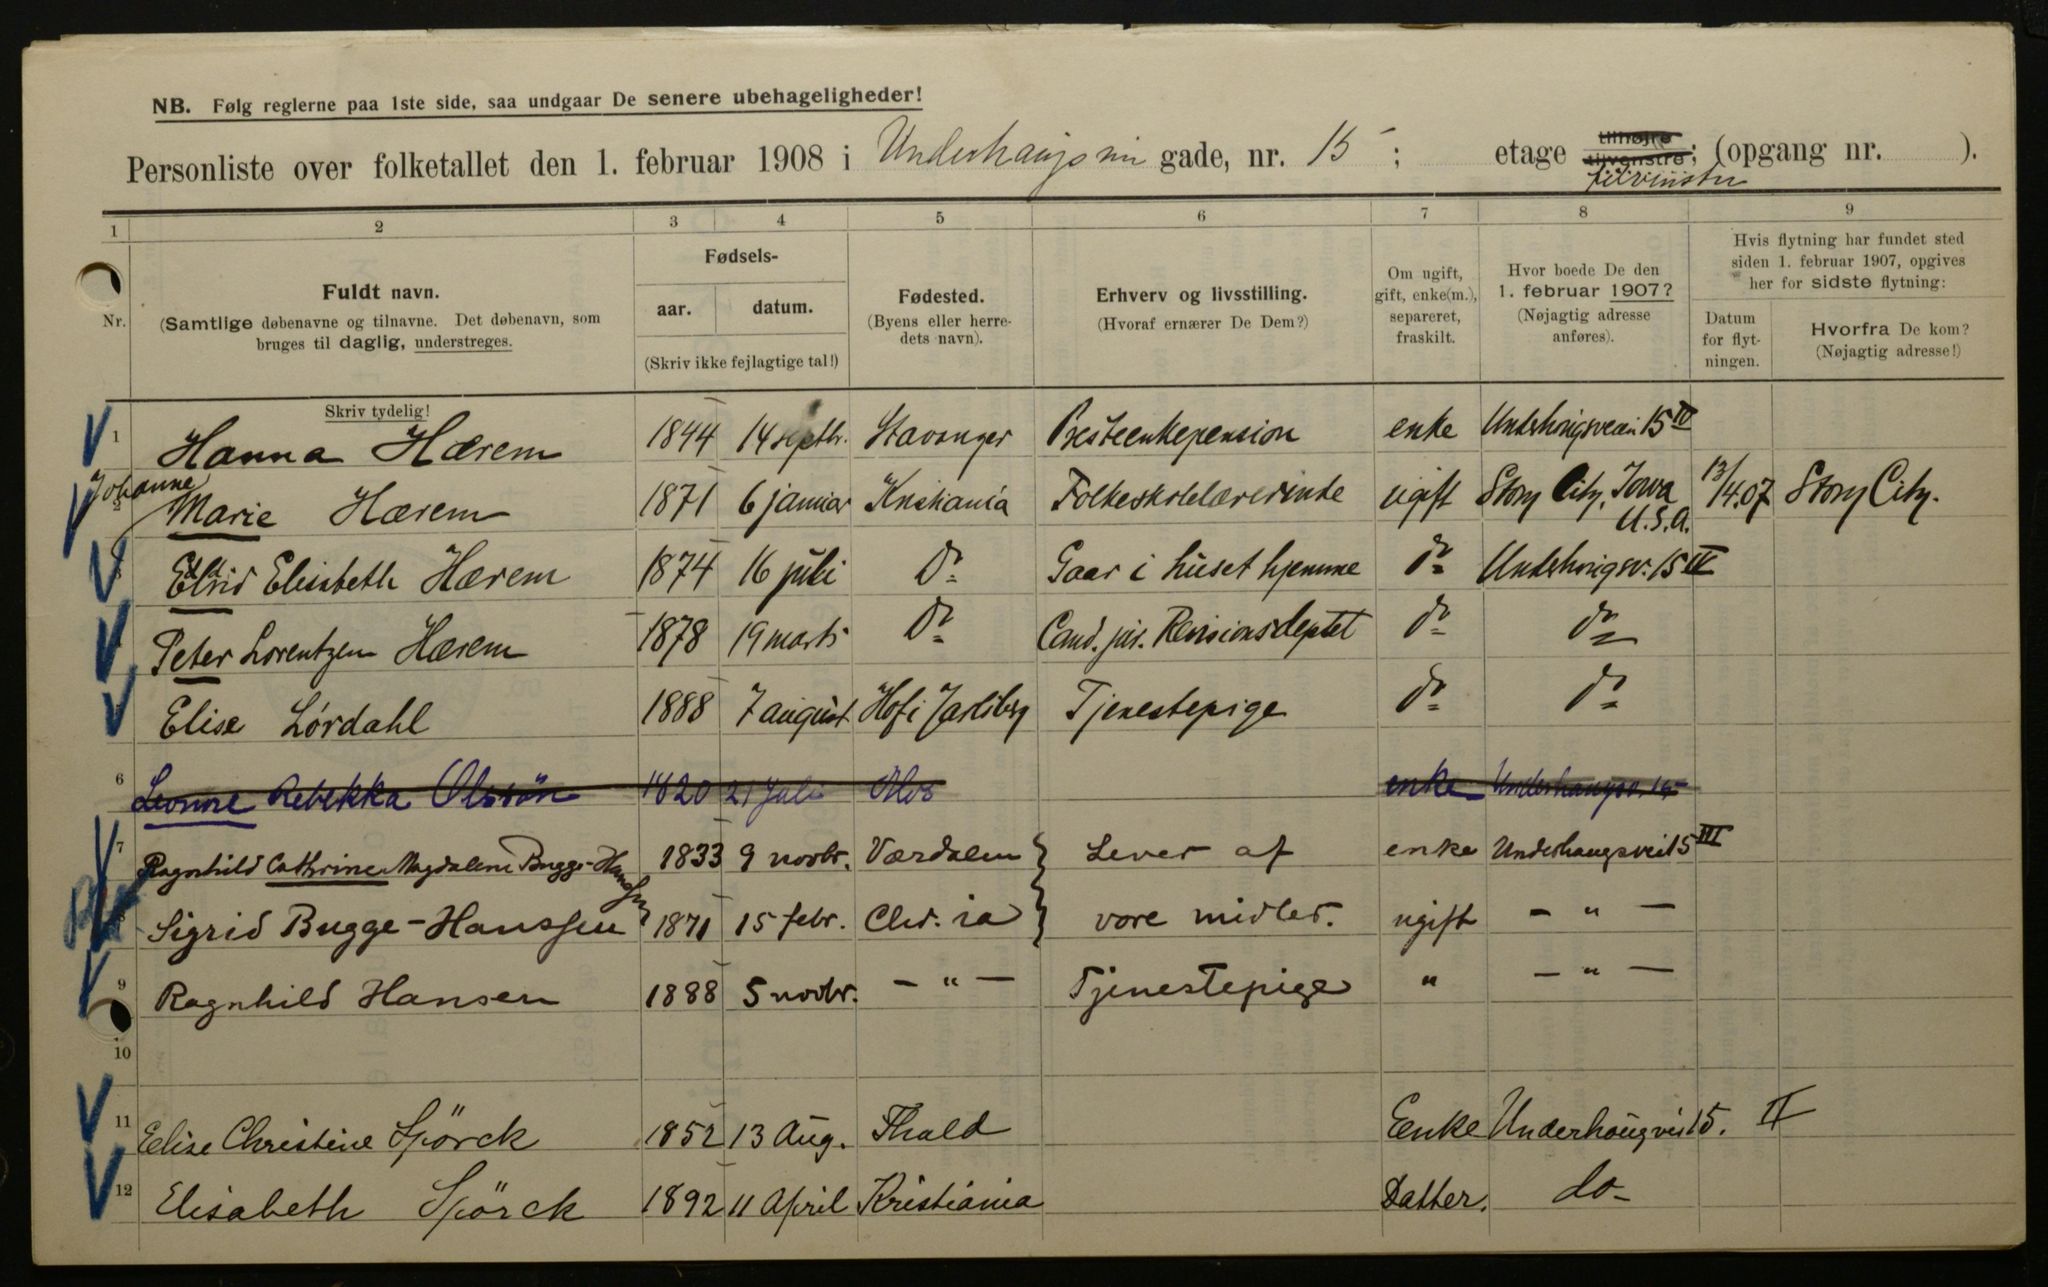 NB. Følg reglerne paa 1ste side, saa undgaar De senere ubehageligheder!
Personliste over folketallet den 1. februar 1908 i Underhaugsvn gade, nr. 15 ; etage tilhøjre tilvenstre; (opgang nr. ).
tilvenstre
1 2 3 4 5 6 7 8 9
Nr.
Fuldt navn.
(Samtlige døbenavne og tilnavne. Det døbenavn, som
bruges til daglig, understreges.
Skriv tydelig!
Fødsels-
aar. datum.
(Skriv ikke fejlagtige tal!)
Fødested.
(Byens eller herre-
dets navn).
Erhverv og livsstilling.
(Hvoraf ernærer De Dem?)
Om ugift,
gift, enke(m.),
separeret,
fraskilt.
Hvor boede De den
1. februar 1907?
(Nøjagtig adresse
anføres).
Hvis flytning har fundet sted
siden 1. februar 1907, opgives
her for sidste flytning:
Datum
for flyt-
ningen.
Hvorfra De kom?
(Nøjagtig adresse!)
1 Hanna Hærem 1844 14 septbr. Stavanger Presteenkepension enke Underhougsveien 15 IV
Johanne
2 Marie Hærem 1871 6 januar Kristiania Folkeskolelærerinde ugift Story City, Iowa U.S.A. 13/4.07 Story City.
3 Eldrid Elisabeth Hærem 1874 16 juli Do Gaar i huset hjemme do Underhougsv. 15 IV
4 Peter Lorentzen Hærem 1878 19 marts Do Cand. jur. Revisionsdeptet do do
5 Elise Lørdahl 1888 7 august Hof i Jarlsberg Tjenestepige do do
6 Leonore Rebekka Olssøn 1820 21 Juli enke Underhaugsv. 15
7 Ragnhild Cathrine Magdalene Bugge-Hanssen 1833 9 novbr. Værdalen } Lever af enke Underhaugsvei 15 III
8 Sigrid Bugge-Hanssen 1871 15 febr. Chr. ia } vore midler. ugift - " -
9 Ragnhild Hansen 1888 5 novbr. - " - Tjenestepige " - " -
10
11 Elise Christine Spörck 1852 13 Aug. Fhald Enke Underhougvei 15. II
12 Elisabeth Spörck 1892 11 April Kristiania Datter. do-